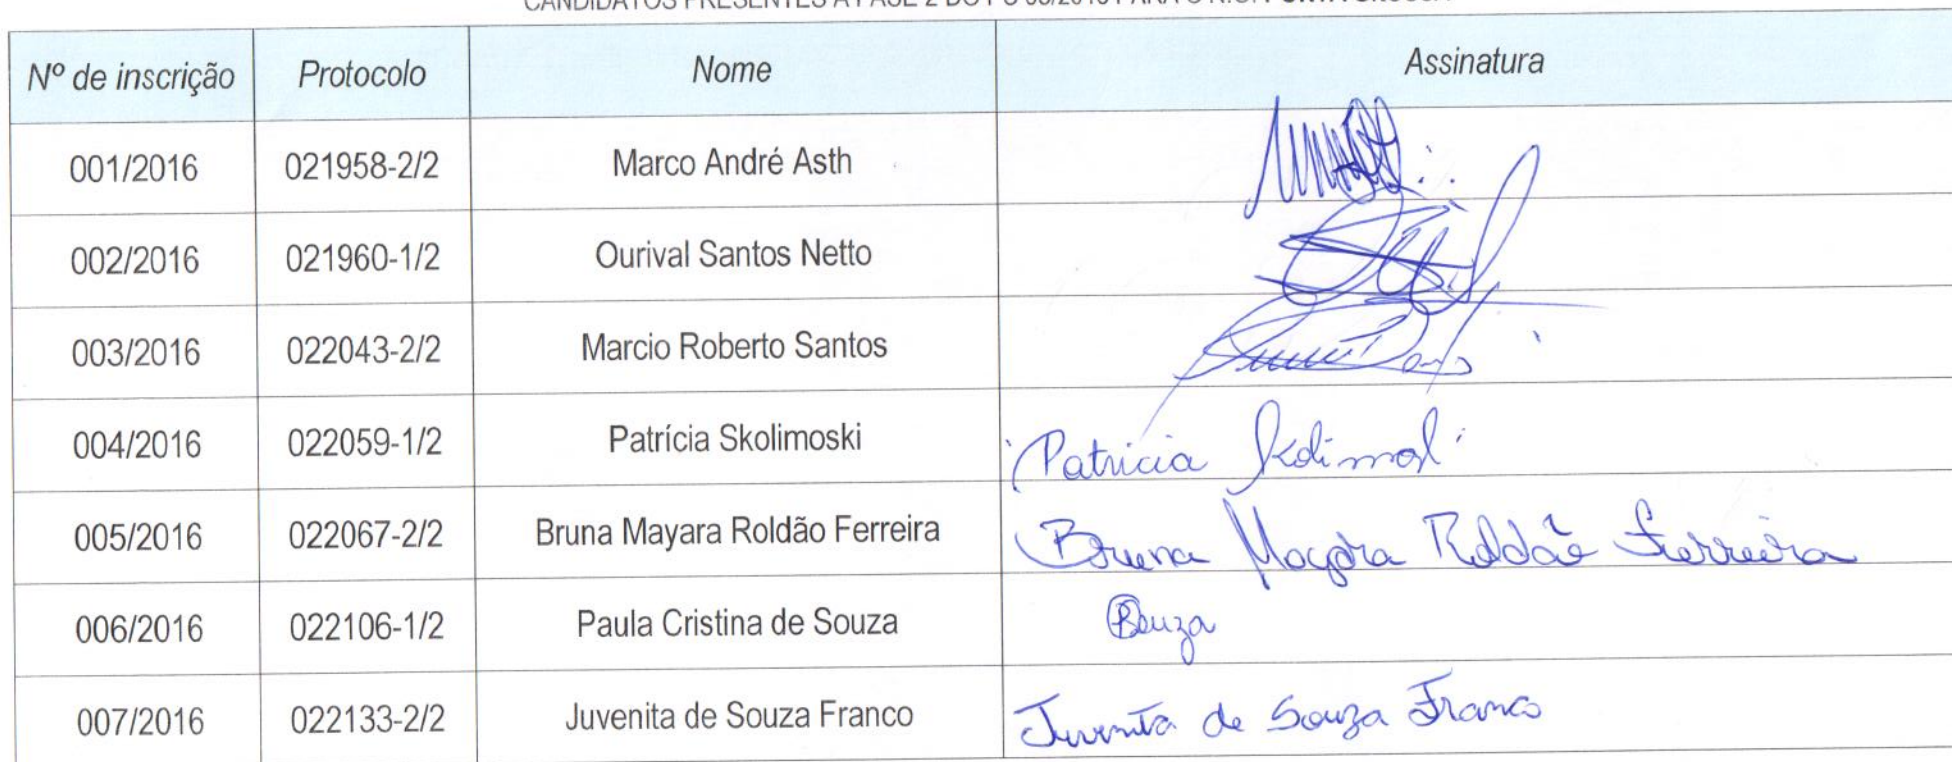 Nº de inscrição Protocolo Nome Assinatura
001/2016 021958-2/2 Marco André Asth
002/2016 021960-1/2 Ourival Santos Netto
003/2016 022043-2/2 Marcio Roberto Santos
004/2016 022059-1/2 Patrícia Skolimoski Patricia
005/2016 022067-2/2 Bruna Mayara Roldão Ferreira Bruna Mayara Roldão Ferreira
006/2016 022106-1/2 Paula Cristina de Souza
007/2016 022133-2/2 Juvenita de Souza Franco Juvenita de Souza Franco